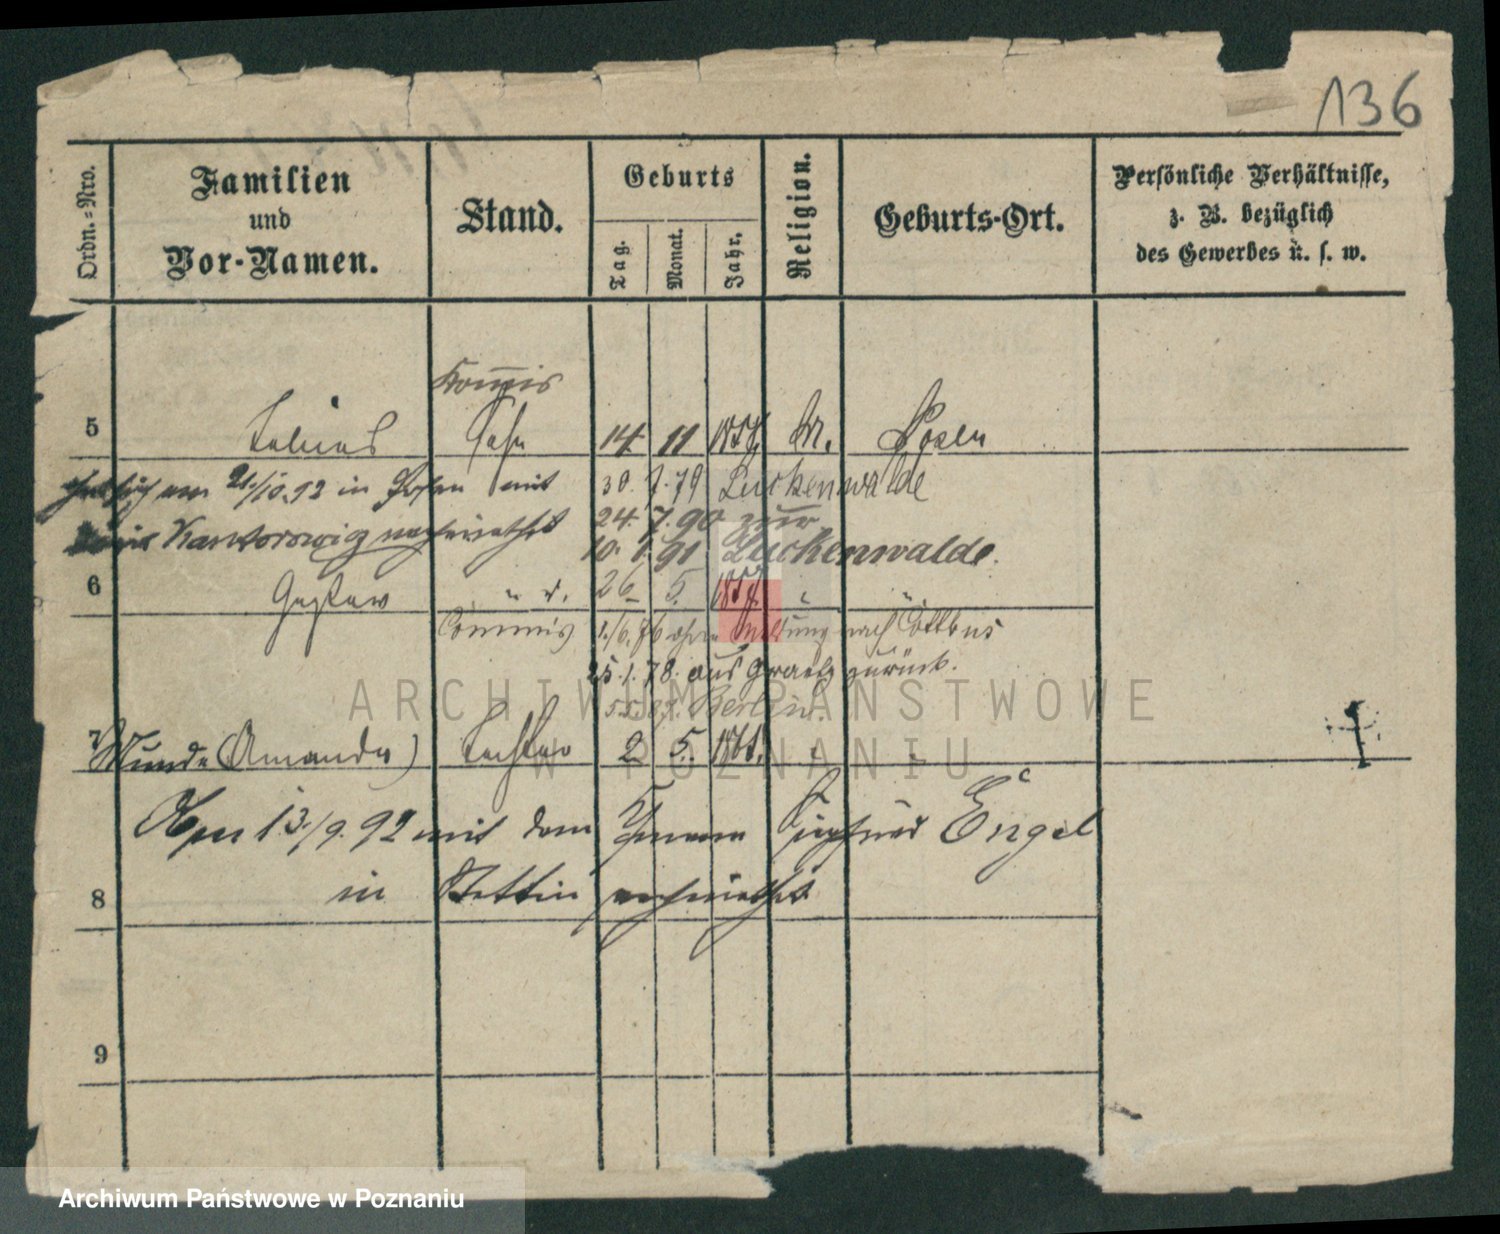 136
Ordn.-Nro.
Familien
und
Vor-Namen.
Stand.
Geburts
Tag.
Monat.
Jahr.
Religion.
Geburts-Ort.
Persönliche Verhältnisse,
z. B. bezüglich
des Gewerbes u. s. w.
Kom̅is
5 Tobias Sohn 14 11 185 M. Posen
hat sich am 21/10.92 in Posen mit
30. 7. 79 Luckenwalde
Kantorowicz verheirathet
24. 7. 90 zur
10. 1. 91 Luckenwalde.
6 Gustav " d. 26 5. 185 " "
Commis 1./6. 76 ohne Meldung nach Cottbus
25. 1. 78. aus Graetz zurück.
5.5. 87. Berlin.
7 Wanda (Amanda) Tochter 2 5. 186 " "
Am 13./9. 92 mit dem Siegfried Engel
8 in Stettin verheirathet
9
ARCHIWUM PAŃSTWOWE
W POZNANIU
Archiwum Państwowe w Poznaniu